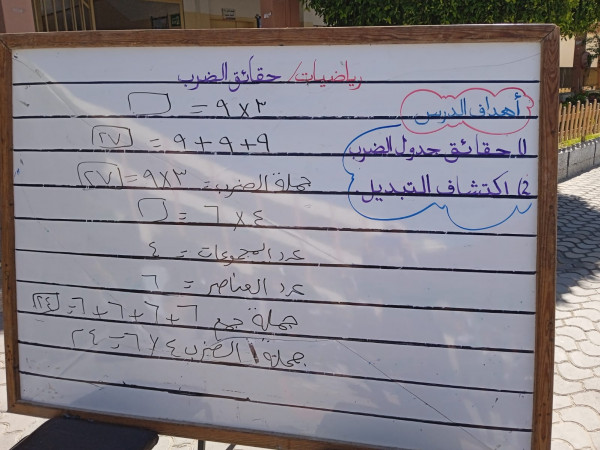 رياضيات/ حقائق الضرب
أهداف الدرس
1) حقائق جدول الضرب
2) اكتشاف التبديل.
٣ × ٩ = □
٩ + ٩ + ٩ = ٢٧
جملة الضرب = ٣ × ٩ = ٢٧
٤ × ٦ = □
عدد المجموعات = ٤
عدد العناصر = ٦
جملة جمع ٦ + ٦ + ٦ + ٦ = ٢٤
جملة الضرب ٤ × ٦ = ٢٤